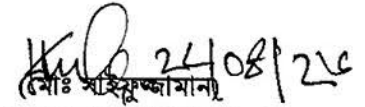 24/08/26
(মোঃ সাইফুজ্জামান)